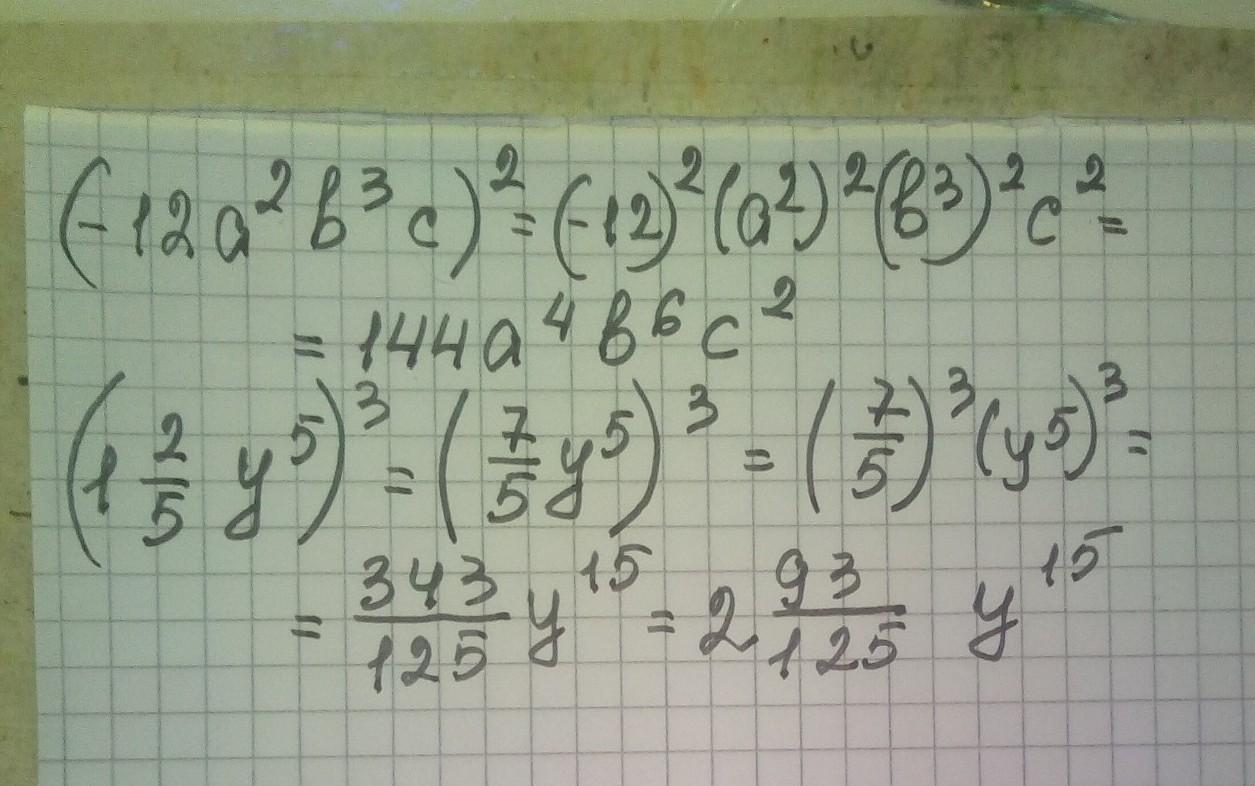 (-12a²b³c)² = (-12)²(a²)²(b³)²c² =
= 144a⁴b⁶c²
(1 2/5 y⁵)³ = (7/5 y⁵)³ = (7/5)³(y⁵)³ =
= 343/125 y¹⁵ = 2 93/125 y¹⁵